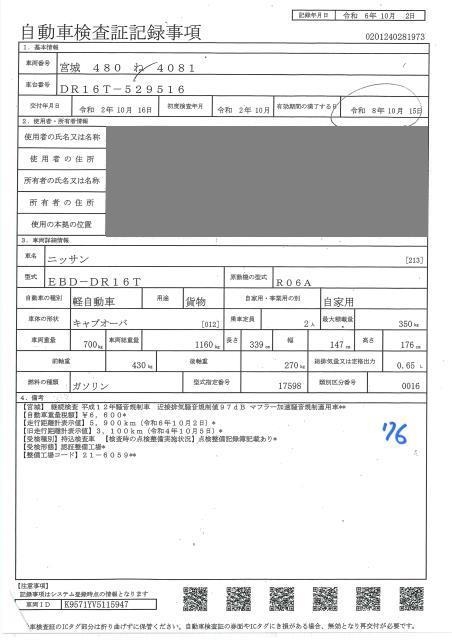 記録年月日 令和 6年10月 2日
自動車検査証記録事項
0201240281973
1. 基本情報
車両番号 宮城 480 ね 4081
車台番号 DR16T-529516
交付年月日 令和 2年10月16日 初度検査年月 令和 2年10月 有効期間の満了する日 令和 8年10月15日
2. 使用者・所有者情報
使用者の氏名又は名称
使用者の住所
所有者の氏名又は名称
所有者の住所
使用の本拠の位置
3. 車両詳細情報
車名 ニッサン [213]
型式 EBD-DR16T 原動機の型式 R06A
自動車の種別 軽自動車 用途 貨物 自家用・事業用の別 自家用
車体の形状 キャブオーバ [012] 乗車定員 2人 最大積載量 350kg
車両重量 700kg 車両総重量 1160kg 長さ 339cm 幅 147cm 高さ 176cm
前軸重 430kg 後軸重 270kg 総排気量又は定格出力 0.65L
燃料の種類 ガソリン 型式指定番号 17598 類別区分番号 0016
4. 備考
【宮城】 継続検査 平成12年騒音規制車 近接排気騒音規制値97dB マフラー加速騒音規制適用車**
【自動車重量税額】¥6,600*
【走行距離計表示値】5,900km(令和6年10月2日)*
【旧走行距離計表示値】3,100km(令和4年10月5日)*
【受検種別】持込検査車 【検査時の点検整備実施状況】点検整備記録簿記載あり*
【受検形態】認証整備工場*
【整備工場コード】21-6059**
76
【注意事項】
記載事項はシステム登録時点の情報となります
車両ID K9571YV5115947
車検査証のICタグ部分は折り曲げずに保管ください。自動車検査証の券面やICタグにき損がある場合、無効となり再交付が必要です。